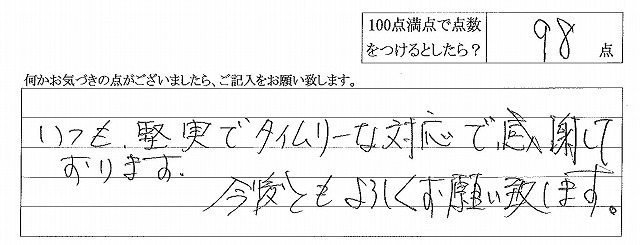 100点満点で点数
をつけるとしたら？ 98 点
何かお気づきの点がございましたら、ご記入をお願い致します。
いつも、堅実でタイムリーな対応で、感謝して
おります。
今後ともよろしくお願い致します。